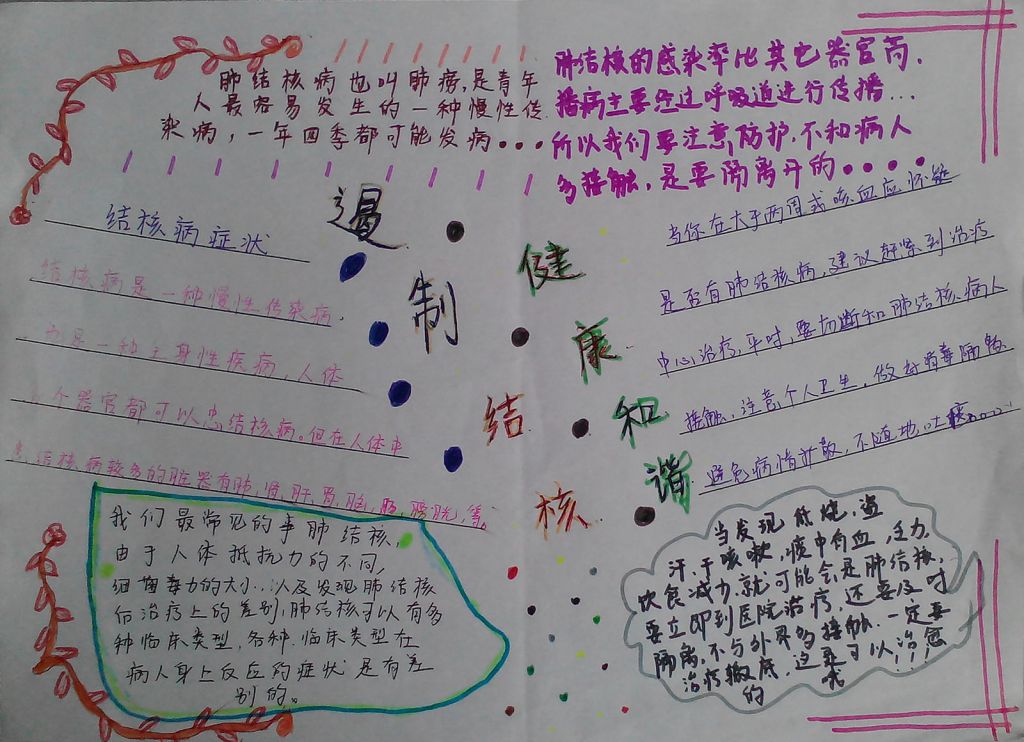 肺结核病也叫肺痨,是青年
人最容易发生的一种慢性传
染病,一年四季都可能发病...
肺结核的感染率比其它器官高,
播病主要经过呼吸道进行传播...
所以我们要注意防护,不和病人
多接触,是要隔离开的....
遏制结核
健康和谐
结核病症状
结核病是一种慢性传染病,
也是一种全身性疾病,人体
个器官都可以患结核病。但在人体中
结核病较多的脏器有肺,肾,肝,胃,脑,肠,膀胱,等。
当你在大于两周或咳血应怀疑
是否有肺结核病,建议赶紧到治疗
中心治疗,平时,要切断和肺结核病人
接触,注意个人卫生,做好消毒隔物
避免病情扩散,不随地吐痰......
我们最常见的事肺结核,
由于人体抵抗力的不同,
细菌毒力的大小,以及发现肺结核
后治疗上的差别,肺结核可以有多
种临床类型,各种临床类型在
病人身上反应的症状是有差
别的。
当发现低烧,盗
汗,干咳嗽,痰中有血,乏力,
饮食减少,就可能会是肺结核,
要立即到医院治疗,还要及时
隔离,不与外界多接触,一定要
治疗彻底,这是可以治愈
的哦!!!